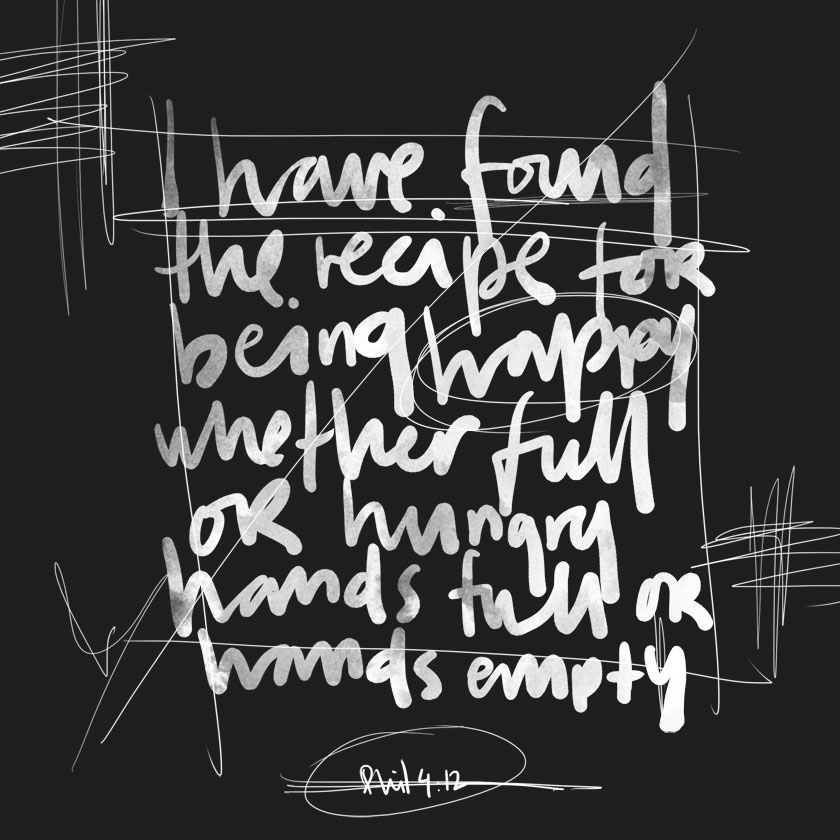 I have found
the recipe for
being happy
whether full
or hungry
hands full or
hands empty
Phil 4:12